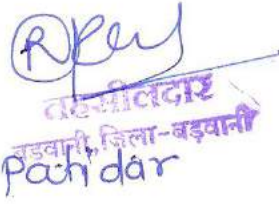 तहसीलदार
बड़वानी, जिला-बड़वानी
Patidar